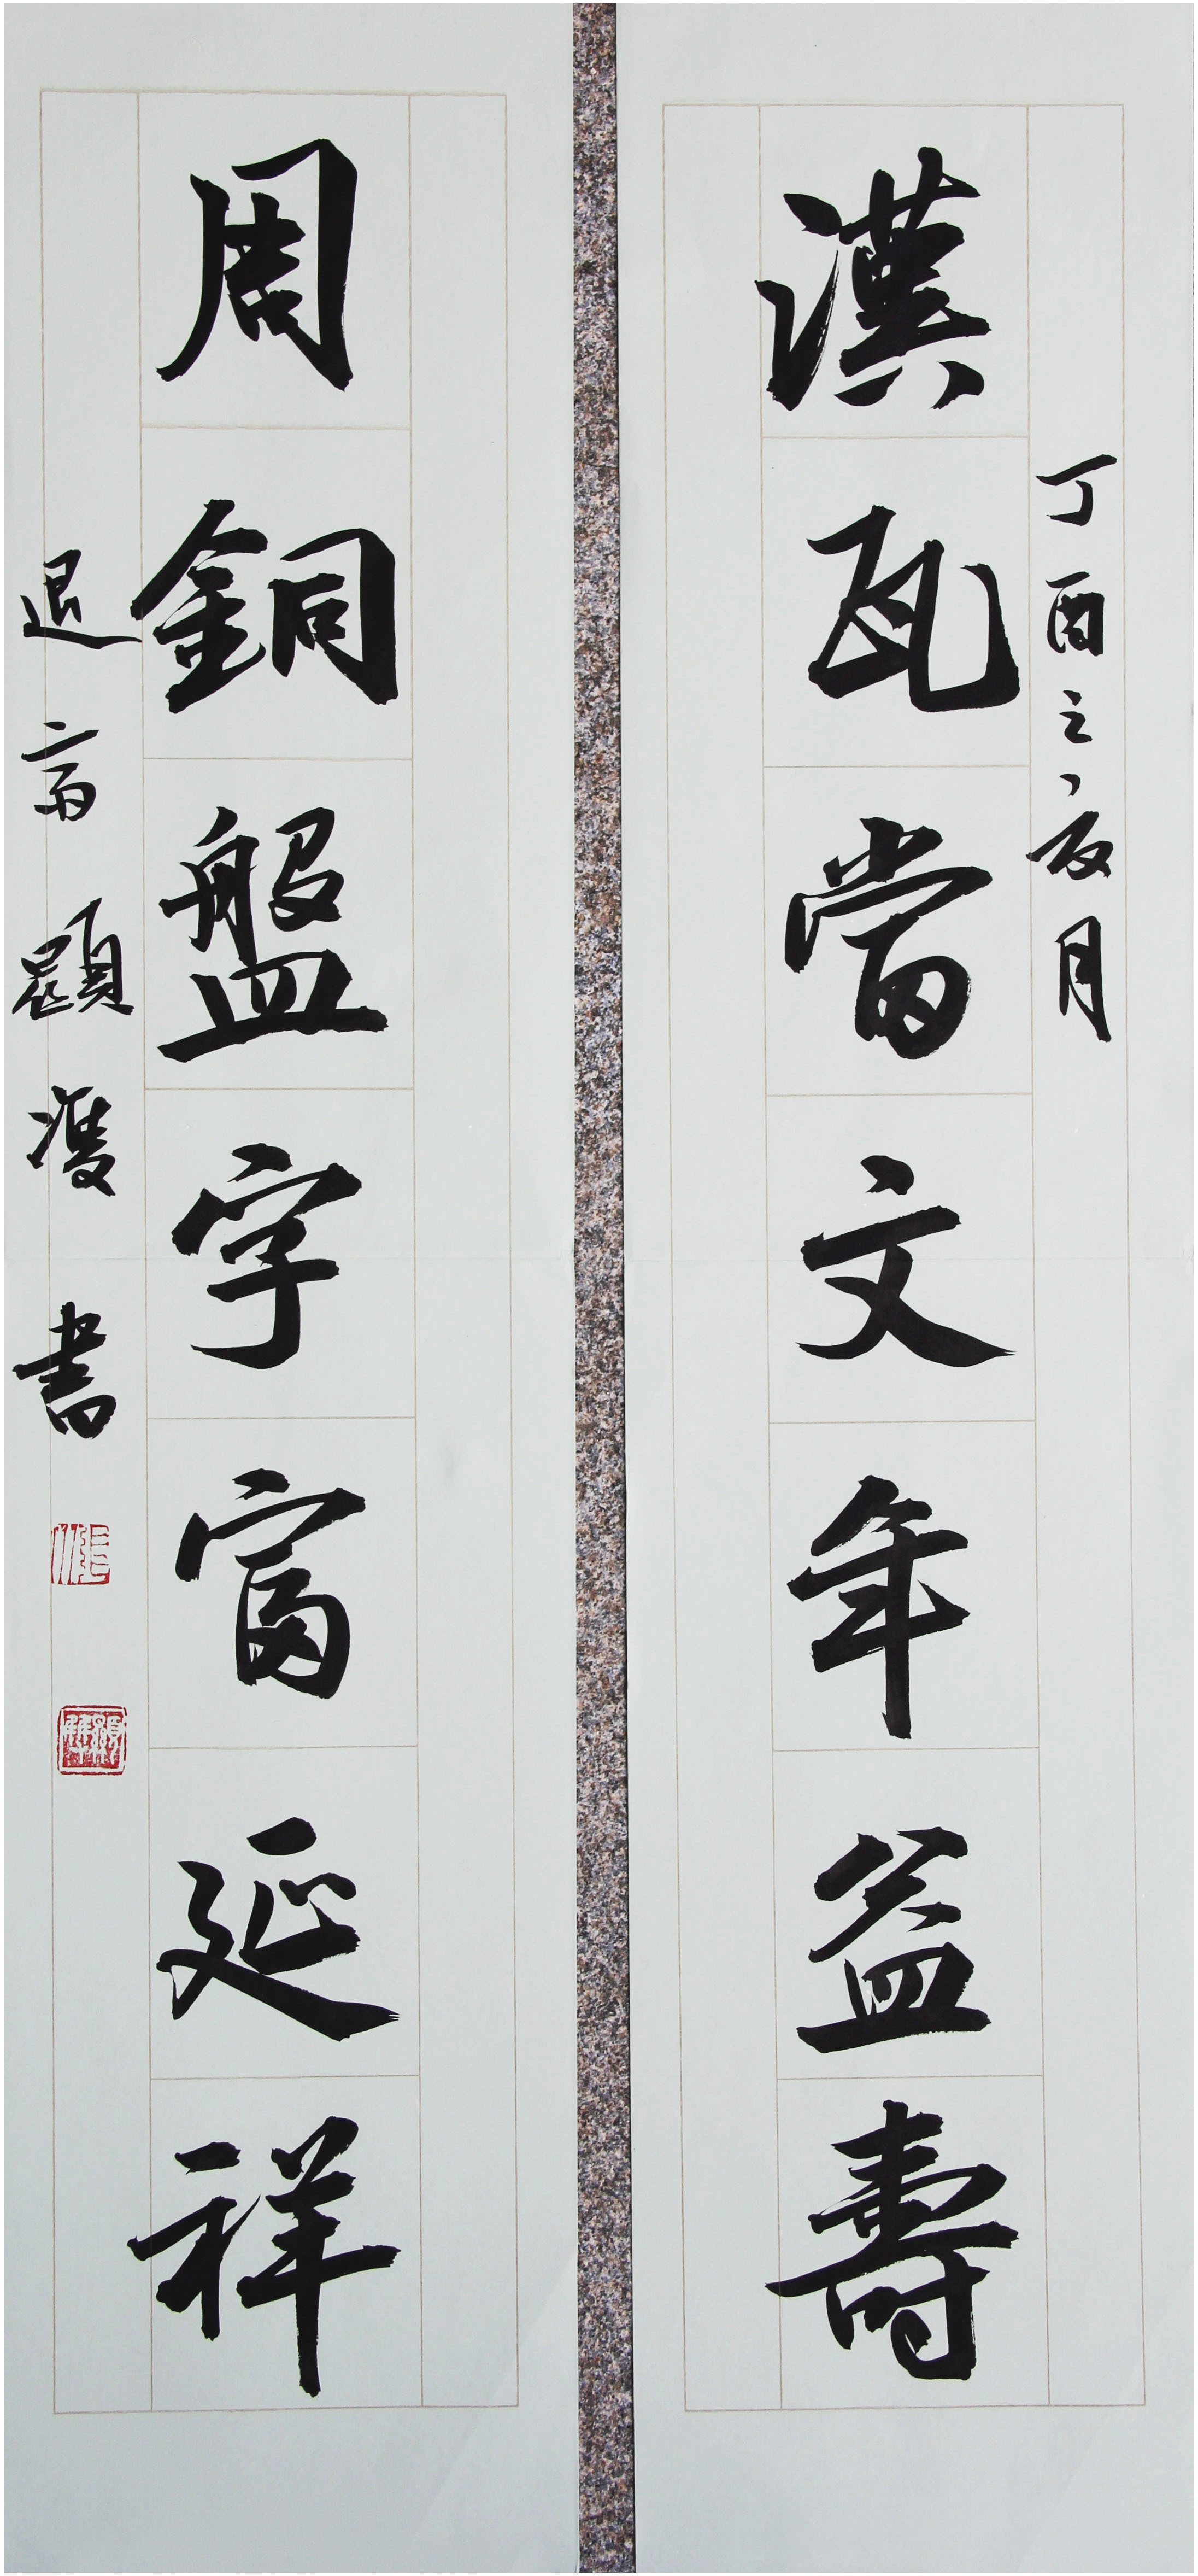 丁酉之夏月
漢瓦當文年益壽
周銅盤字富延祥
退齋顯雙書